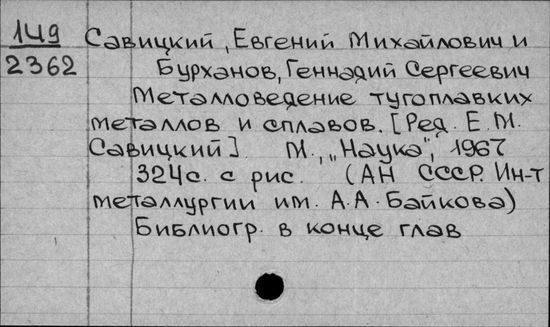 149
2362
Савицкий, Евгений Михайлович и
Бурханов, Геннадий Сергеевич
Металловедение тугоплавких
металлов и сплавов. [Ред. Е.М.
Савицкий]. М., „Наука", 1967
324с. с рис. (АН СССР. Ин-т
металлургии им. А.А. Байкова)
Библиогр. в конце глав